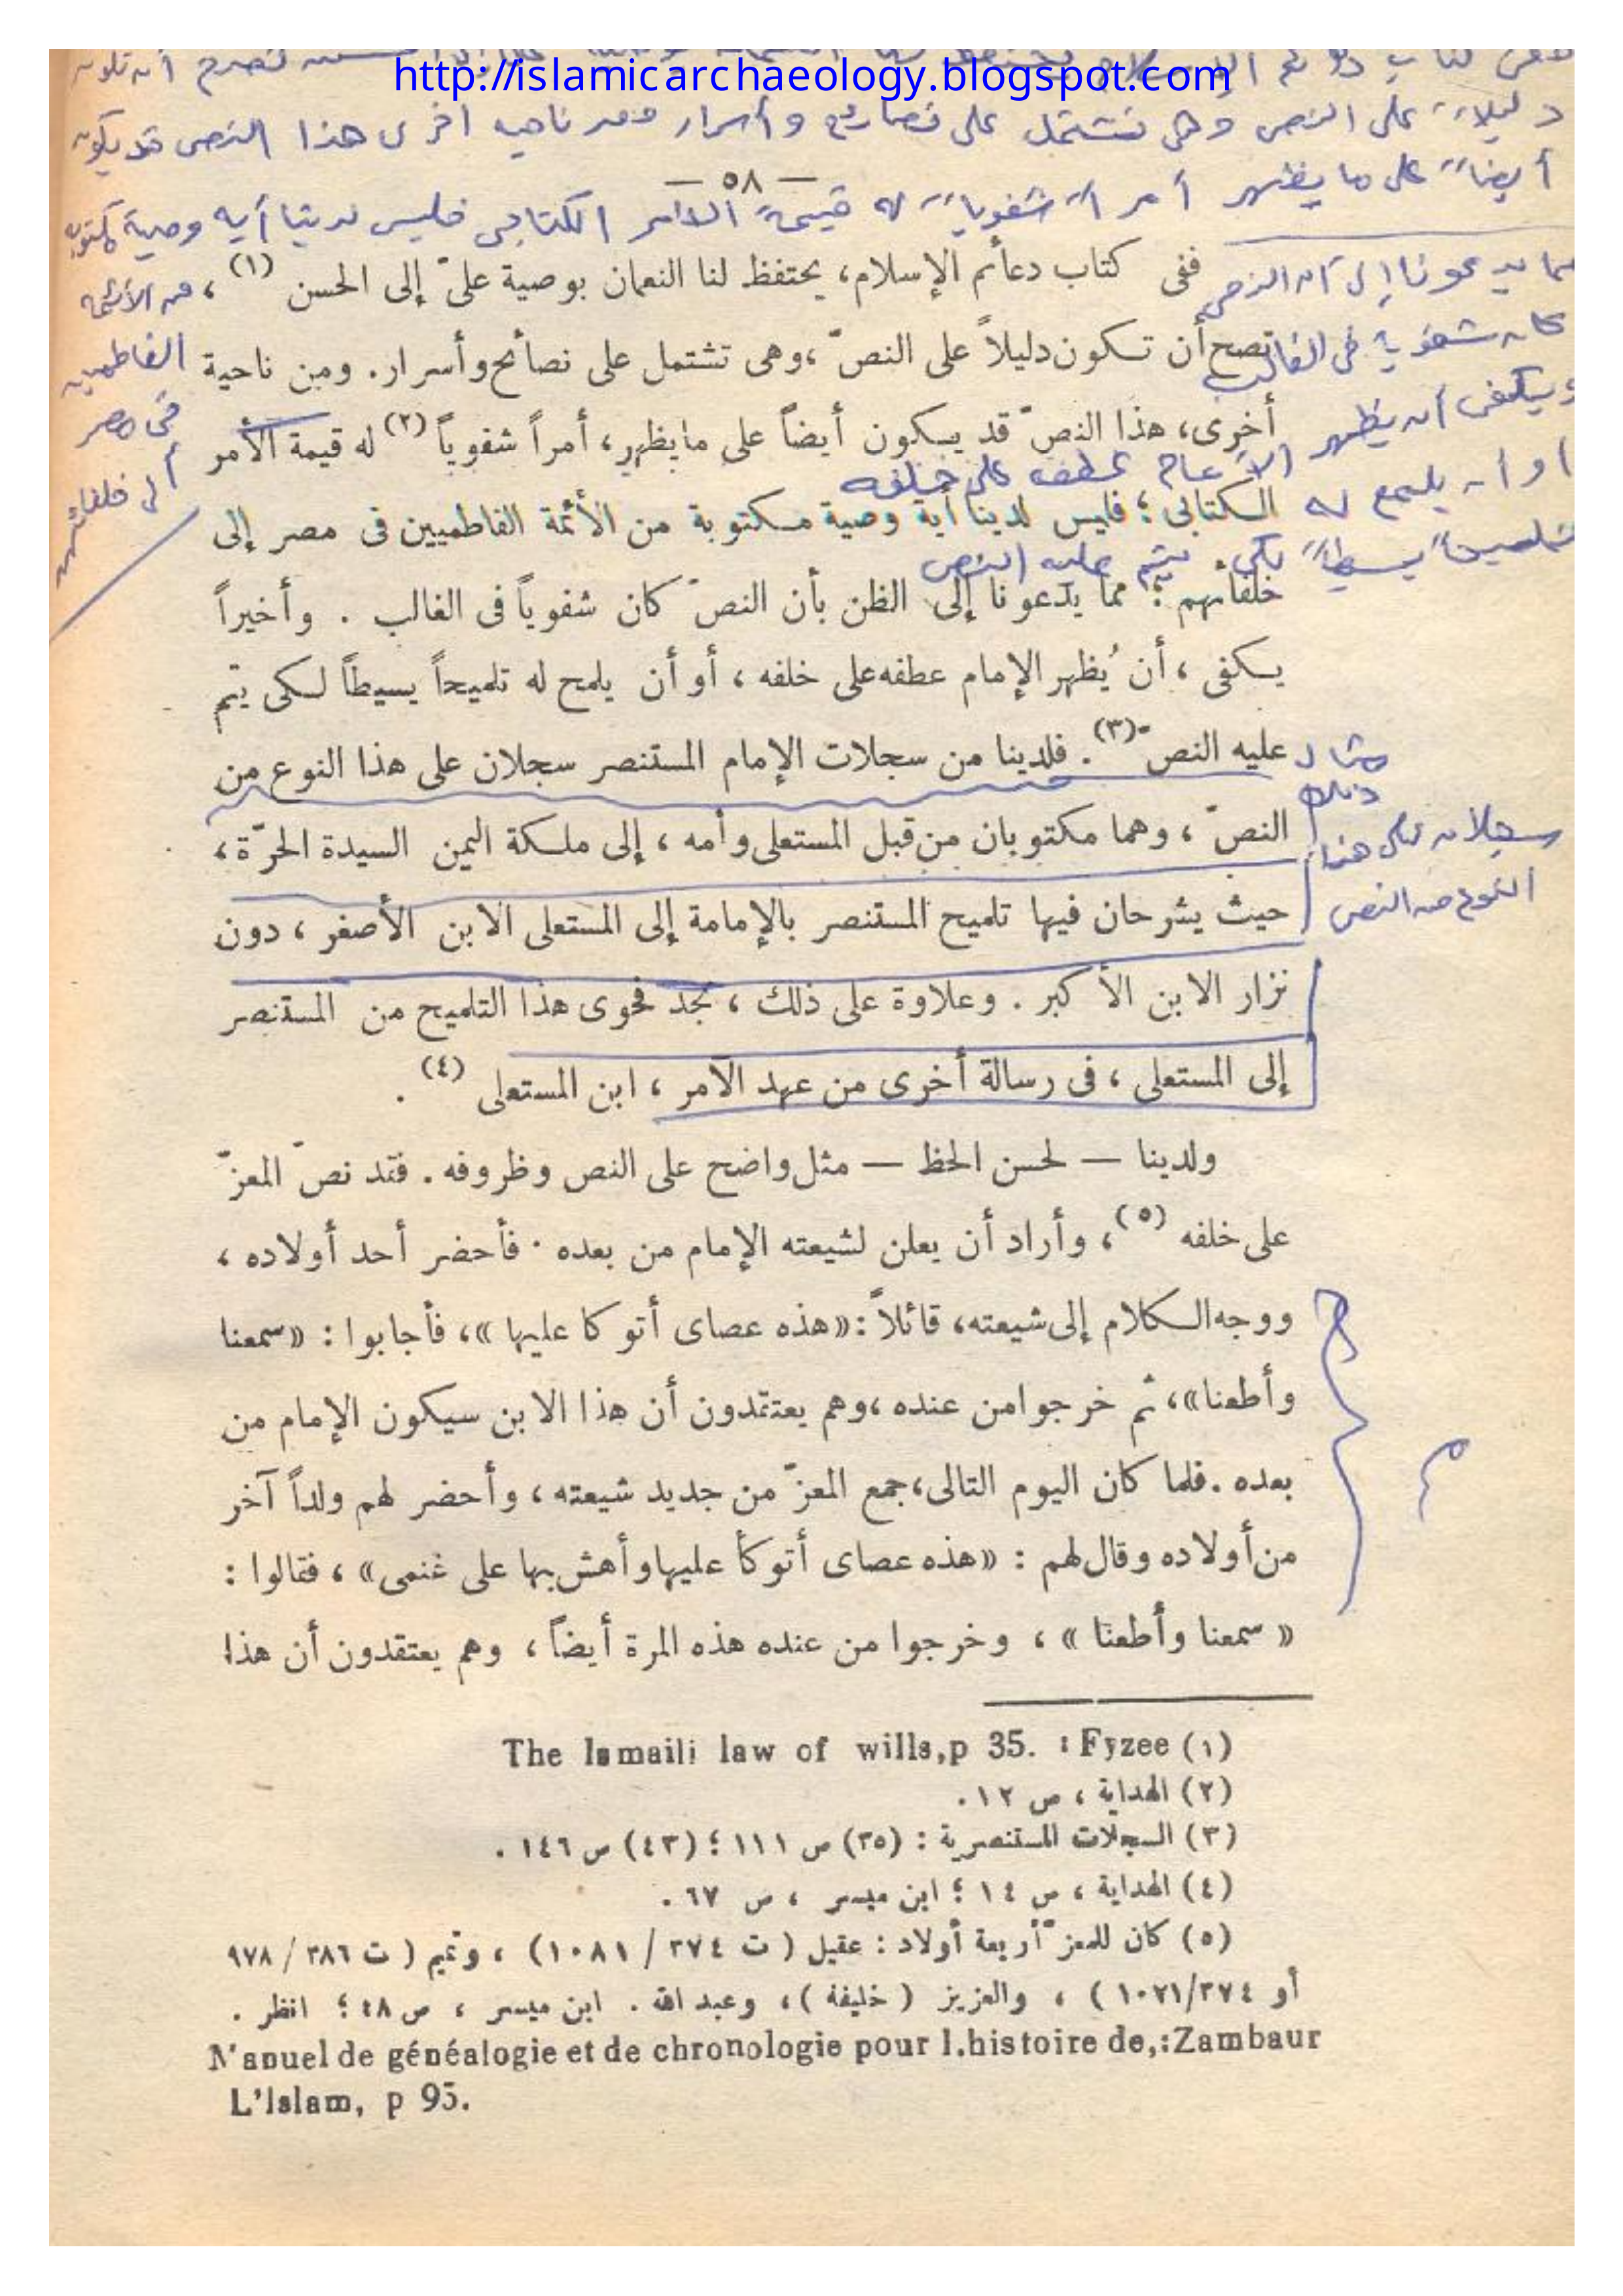 http://islamicarchaeology.blogspot.com
دليلاً على النص وهى تشتمل على نصائح وأسرار ومن ناحيه اخرى هذا النص قد يكون
— ٥٨ —
أيضاً على ما يظهر أمراً شفوياً له قيمة الامر الكتابى فليس لدينا أيه وصية مكتوبة
مما يدعونا إلى أن النص
كان شفوياً فى الغالب
ويكفى أن يظهر
الإمام عطفه على خلفه
أو أن يلمح له
تلميحاً بسيطاً لكى يتم عليه النص
من الأئمة
الفاطميين
فى مصر
إلى خلفائهم
ففى كتاب دعأم الإسلام، يحتفظ لنا النعمان بوصية علىّ إلى الحسن (١)،
تصح أن تكون دليلاً على النصّ، وهى تشتمل على نصأمح وأسرار. ومن ناحية
أخرى، هذا النصّ قد يكون أيضاً على مايظهر، أمراً شفوياً (٢) له قيمة الأمر
الكتابى؛ فليس لدينا أية وصية مكتوبة من الأئمة الفاطميين فى مصر إلى
خلفأئهم؛ مما يدعونا إلى الظن بأن النصّ كان شفوياً فى الغالب . وأخيراً
يكفى، أن يُظهر الإمام عطفه على خلفه، أو أن يلمح له تلميحاً يسيطاً لكى يتم
عليه النصّ (٣). فلدينا من سجلات الإمام المستنصر سجلان على هذا النوع من
النصّ، وهما مكتوبان من قبل المستعلى وأمه، إلى ملكة اليمن السيدة الحرّة،
حيث يشرحان فيها تلميح المستنصر بالإمامة إلى المستعلى الابن الأصغر، دون
نزار الابن الأكبر. وعلاوة على ذلك، نجد فحوى هذا التلميح من المستنصر
إلى المستعلى، فى رسالة أخرى من عهد الآمر، ابن المستعلى (٤).
مثال
ذلك
سجلان على هذا
النوع من النص
ولدينا — لحسن الحظ — مثل واضح على النص وظروفه. فقد نصّ المعزّ
على خلفه (٥)، وأراد أن يعلن لشيعته الإمام من بعده. فأحضر أحد أولاده،
ووجه الكلام إلى شيعته، قائلاً: «هذه عصاى أتوكا عليها»، فأجابوا: «سمعنا
وأطعنا»، ثم خرجوا من عنده، وهم يعتقدون أن هذا الابن سيكون الإمام من
بعده. فلما كان اليوم التالى، جمع المعزّ من جديد شيعته، وأحضر لهم ولداً آخر
من أولاده وقال لهم: «هذه عصاى أتوكأ عليها وأهش بها على غنمى»، فقالوا:
«سمعنا وأطعنا»، وخرجوا من عنده هذه المرة أيضاً، وهم يعتقدون أن هذا
(١) Fyzee : The Ismaili law of wills,p 35.
(٢) الهداية، ص ١٢.
(٣) السجلات المستنصرية: (٣٥) ص ١١١؛ (٤٣) ص ١٤٦.
(٤) الهداية، ص ١٤؛ ابن ميسر، ص ٦٧.
(٥) كان للمعزّ أربعة أولاد: عقيل (ت ٣٧٤ / ١٠٨١)، وتميم (ت ٣٨٦ / ٩٧٨
أو ٣٧٤/١٠٧١)، والعزيز (خليفة)، وعبد الله. ابن ميسر، ص ٤٨؛ انظر.
Zambaur:,Manuel de généalogie et de chronologie pour l.histoire de
L'Islam, p 95.